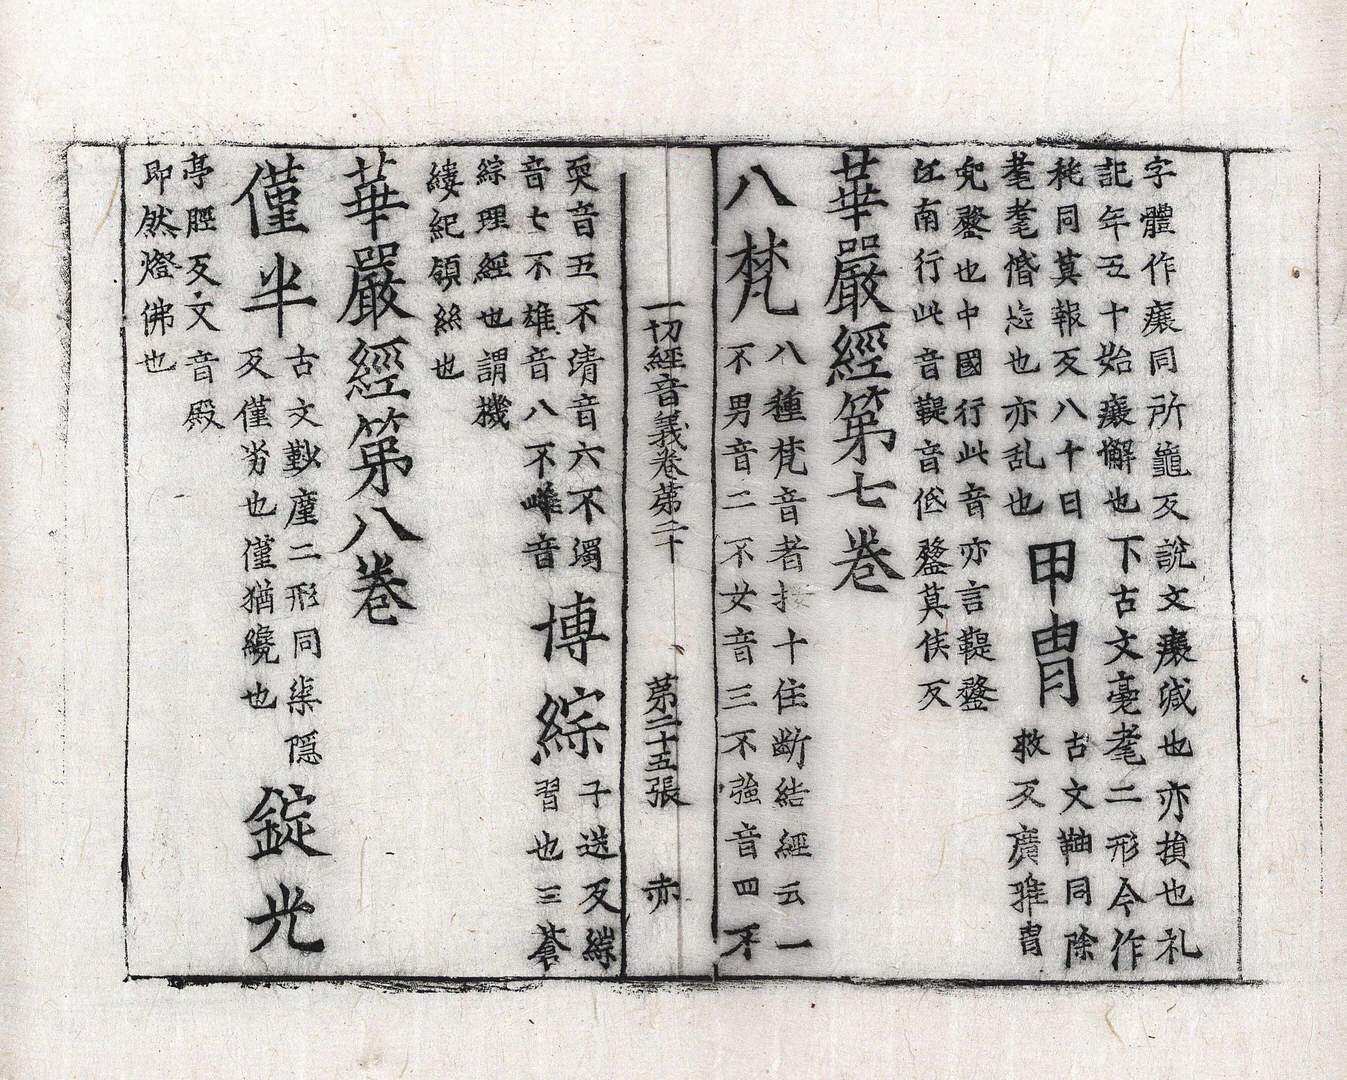 字體作𤸬同所龜反說文𤸬減也亦損也礼
記年五十始𤸬懈也下古文毫耄二形今作
耗同莫報反八十曰
耄耄惛忘也亦乱也
甲胄
古文䩜同除
救反廣雅胄
兜鍪也中國行此音亦言鞮鍪
江南行此音鞮音低鍪莫侯反
華嚴經第七卷
八梵
八種梵音者按十住斷結經云一
不男音二不女音三不強音四不
一切經音義卷第二十 第二十五張 赤
耎音五不清音六不濁
音七不雄音八不雌音
博綜
子送反綜
習也三蒼
綜理經也謂機
縷紀領絲也
華嚴經第八卷
僅半
古文勤廑二形同渠隱
反僅劣也僅猶纔也
錠光
亭脛反又文音殿
即然燈佛也